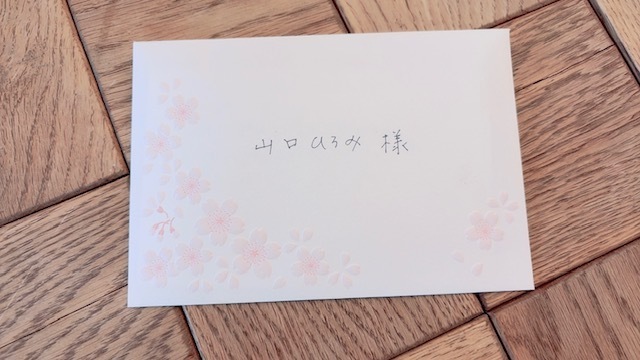 山口ひろみ 様